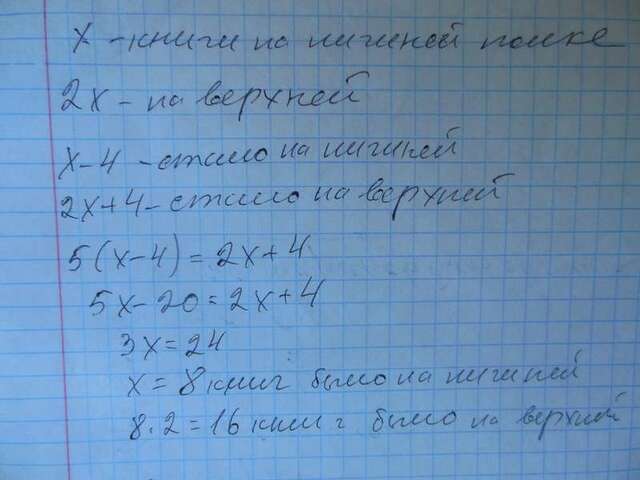 x - книги на нижней полке
2x - на верхней
x-4 - стало на нижней
2x+4 - стало на верхней
5(x-4) = 2x+4
5x-20 = 2x+4
3x = 24
x = 8 книг было на нижней
8.2 = 16 книг было на верхней